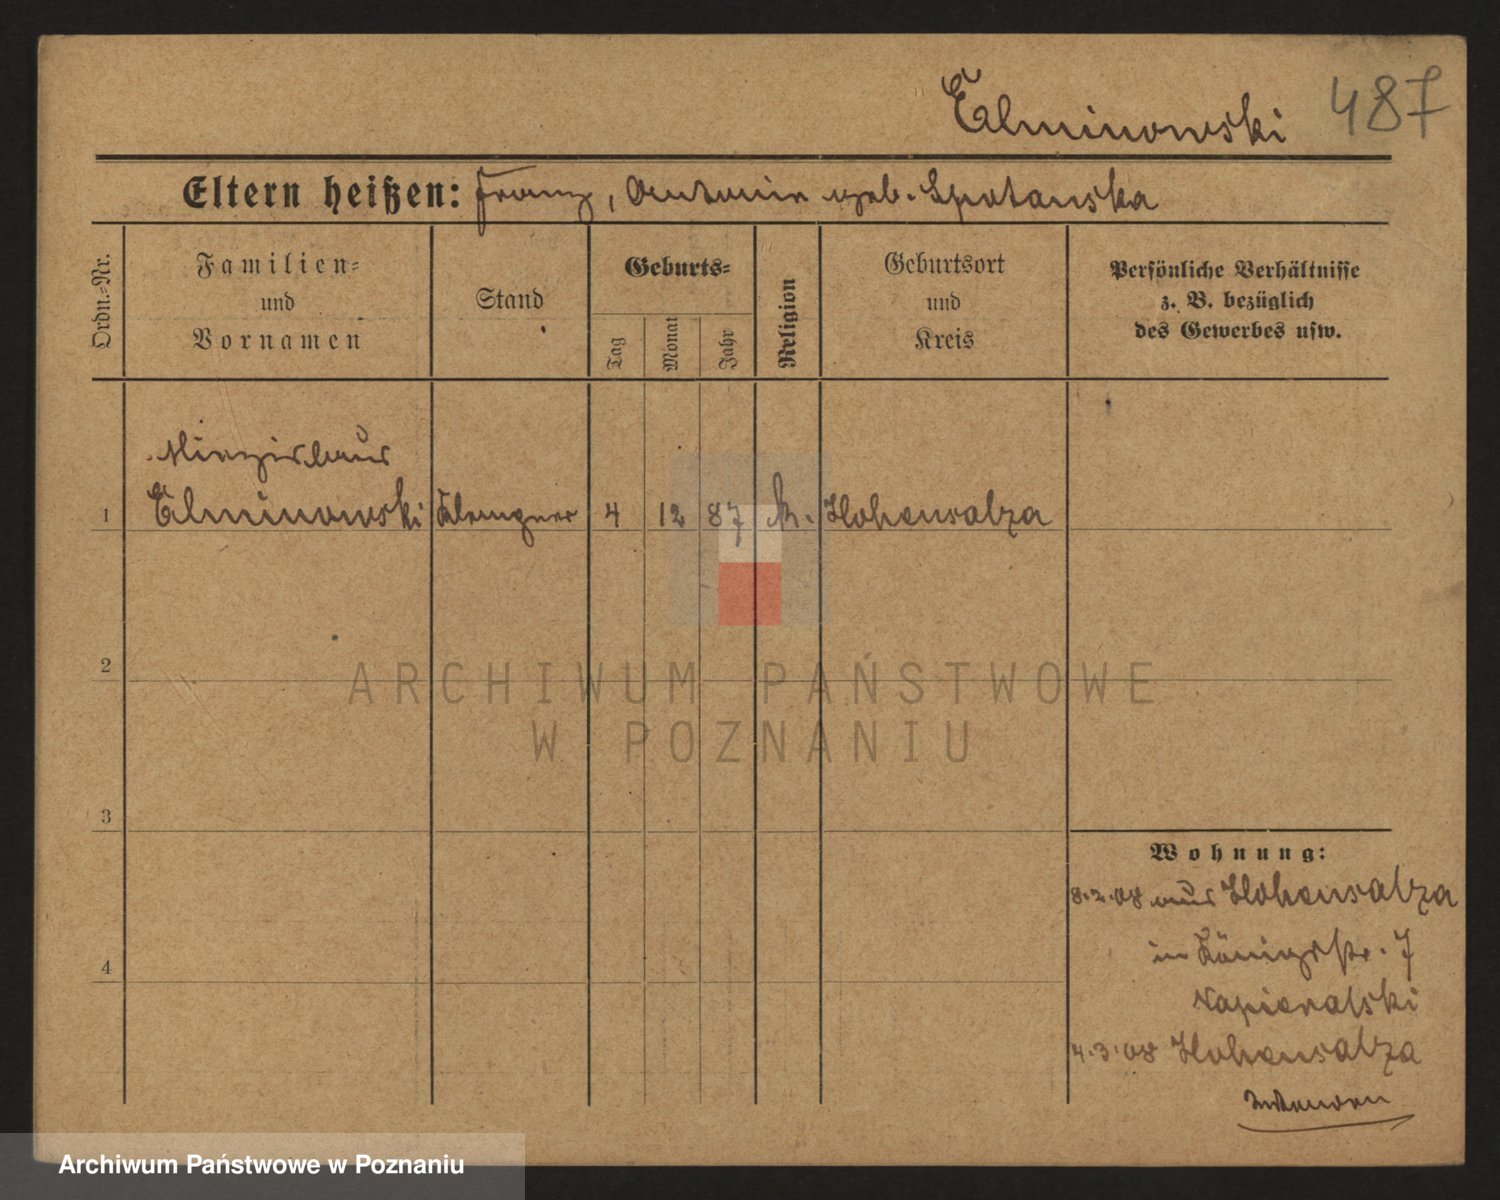 Elminowski 487
Eltern heißen: Franz, Antonie geb. Spotanska
Ordn.-Nr.
Familien-
und
Vornamen
Stand
Geburts-
Tag
Monat
Jahr
Religion
Geburtsort
und
Kreis
Persönliche Verhältnisse
z. B. bezüglich
des Gewerbes usw.
Miezislaus
1 Elminowski Klempner 4 12 87 k. Hohensalza
2
ARCHIWUM PAŃSTWOWE
W POZNANIU
3
Wohnung:
8.2.08 aus Hohensalza
4
in Königsstr. 7
Napieralski
4.3.08 Hohensalza
Archiwum Państwowe w Poznaniu